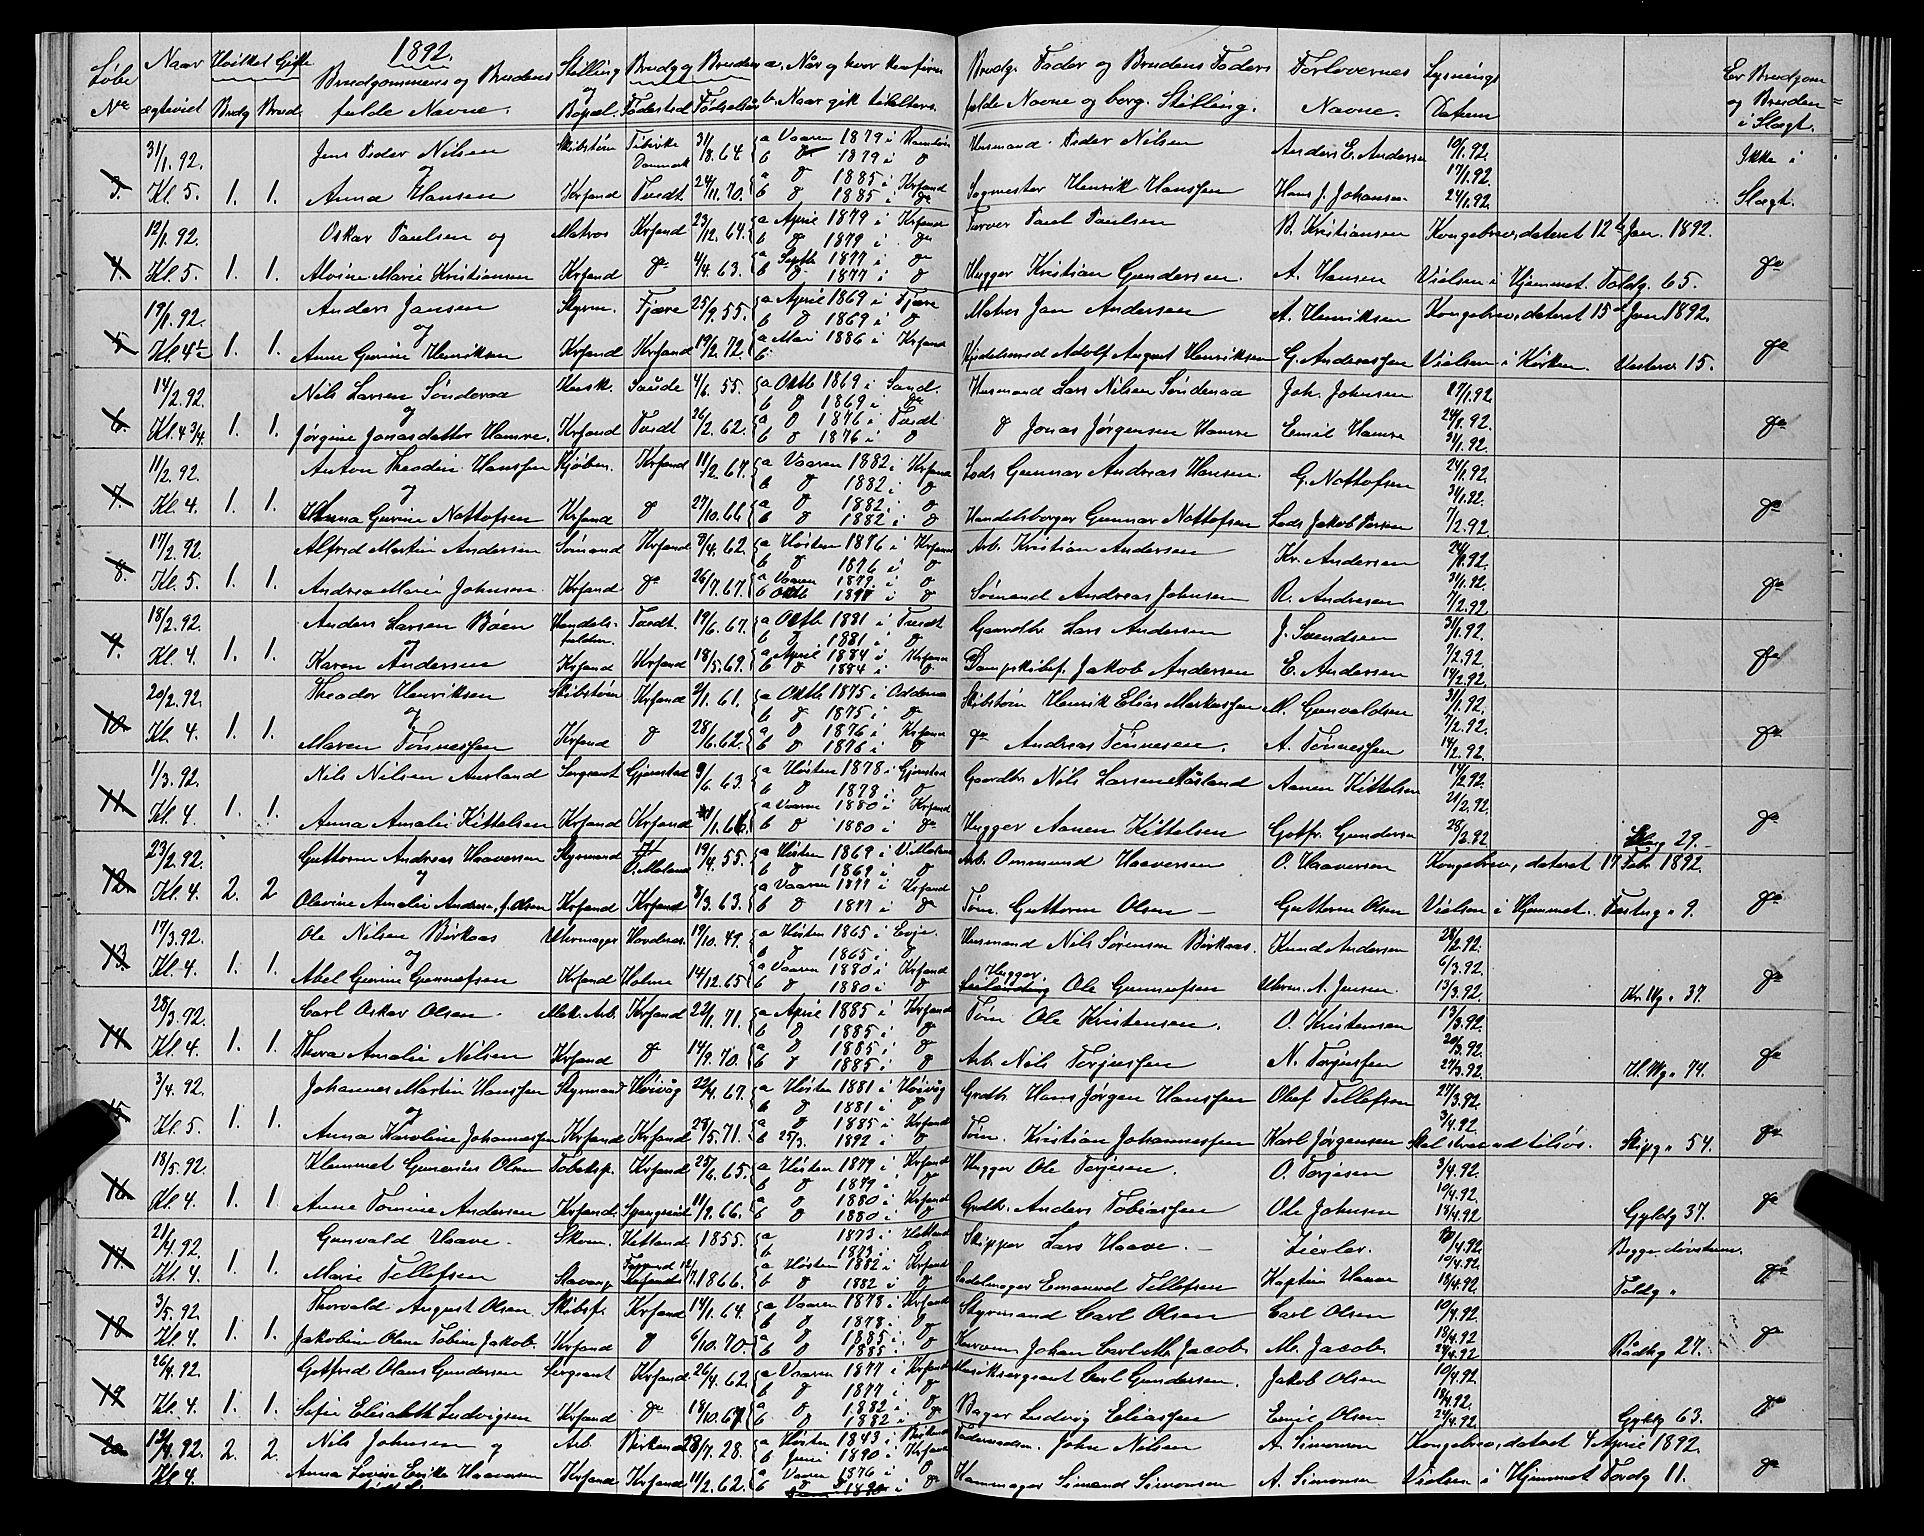 1892.
Løbe Naar Hvilket Gifte Brudgommens og Brudens Stilling Brudg og Brudens a. Når og hvor konfirm. Brudg. Fader og Brudens Faders Forlovernes Lysnings Er Brudgom
No ægteviet Brudg Brud fulde Navne. og Bopæl. Fødested Fødselsår b. Naar fulde Navne og borg. Stilling. Navne. Datum og Bruden i Slægt.
31/1.92. Jens Peder Nilsen Skibstøm 31/8.64 a Vaaren 1879 i Husmand Peder Nilsen Anders E. Andersen 10/1.92. Ikke i
og Danmark b do 1879 i do 17/1.92.
3. Kl. 5. 1. 1. Anna Hansen Krsand Tvedt 24/11.70. a do 1885 i Krsand b do 1885 i do Sagmester Henrik Hanssen Hans J. Johansen 24/1.92. Slægt.
12/1.92. Oskar Paulsen og Matros Krsand 23/12.64. a April 1879 i Krsand b do 1879 i do Farver Paul Paulsen B. Kristiansen Kongebrev, dateret 12te Jan. 1892.
4. Kl. 5. 1. 1. Alvine Marie Kristiansen Krsand do 4/4.63. a Septb 1877 i do b do 1877 i do Hugger Kristian Gundersen. A. Hansen Vielsen i Hjemmet. Toldg. 65. do
19/1.92. Anders Jansen Styrm. Fjære 25/9.55. a April 1869 i Fjære b do 1869 i do Matros Jan Andersen A. Henriksen Kongebrev, dateret 15de Jan 1892.
og
5. Kl. 4½ 1. 1. Anne Gurine Henriksen Krsand Krsand 19/2.72. a Mai 1886 i Krsand b Adolf August Henriksen G. Anderssen Vielsen i Kirken. Vesterv 15. do
14/2.92. Nils Larsen Sønderaa Kusk. Saude 4/6.55. a Oktb 1869 i Sand. b do 1869 i do Husmand Lars Nilsen Sønderaa Joh. Johnsen 17/1.92.
og
6. Kl. 4 3/4. 1. 1. Jørgine Jonasdatter Hamre. Krsand Tvedt 26/2.62. a do 1876 i Tvedt b do 1876 i do do Jonas Jørgensen Hamre Emil Hamre 24/1.92. 31/1.92. do
11/2.92. Anton Theodin Hanssen Kjøbm. Krsand 11/2.67. a Vaaren 1882 i Krsand b do 1882 i do Lods Gunnar Andreas Hansen. G. Nottofsen 24/1.92.
og 31/1.92.
7. Kl. 4. 1. 1. Hanna Gurine Nottofsen Krsand do 27/10.66 a do 1882 i do b do 1882 i do Handelsborger Gunnar Nottofsen Lods Jakob 7/2.92. do
17/2.92. Alfred Martin Andersen Sømand Krsand 3/4.62. a Høsten 1876 i Krsand b do 1876 i do Arb. Kristian Andersen Kr. Andersen 24/1.92.
8. Kl. 5. 1. 1. Andrea Marie Johnsen Krsand do 26/7.67. a Vaaren 1879 i do b Oktb i do Sømand Andreas Johnsen R. Andresen 31/1.92. 7/2.92. do
18/2.92. Anders Larsen Bøen Handels- Tvedt. 19/6.67. a Oktb 1881 i Tvedt b do 1881 i do Gaardbr. Lars Andersen J. Svendsen 31/1.92.
og
9. Kl. 4. 1. 1. Karen Andersen Krsand Krsand 18/5.69. a April 1884 i Krsand b do 1884 i do Dampskibsf. Jakob Andersen E. Andersen 7/2.92. 14/2.92. do
20/2.92. Theodor Henriksen Skibstøm Krsand 2/1.61. a Oktb 1875 i Oddernes b do 1875 i do Skibstøm Henrik Elias Markussen M. Gunvaldsen 31/1.92.
og 7/2.92.
10. Kl. 4. 1. 1. Maren Tønnessen Krsand do 28/6.62. a do 1876 i Krsand b do 1876 i do do Andreas Tønnesen. A. Tønnessen 14/2.92. do
1/3.92. Nils Nilsen Ausland Sergeant Gjerstad 9/6.63. a Høsten 1878 i Gjerstad b do 1878 i do Gaardbr. Nils Larsen Aasland Aanen Kittelsen 14/2.92.
11. Kl. 4 1. 1. Anna Amalie Kittelsen Krsand Krsand a Vaaren 1880 i Krsand b do 1880 i do Hugger Aanen Kittelsen Gotfr. Gundersen 21/2.92. 28/2.92 29. do
23/2.92. Guttorm Andreas Haaversen Styrmand V. Moland 19/4.55. a Høsten 1869 i V. Moland b do 1869 i do Arb. Ommund Haaversen O. Haaversen Kongebrev, dateret 17. Febr. 1892.
og
12. Kl. 4. 2. 2 Olevine Amalie Andersen, f. Olsen Krsand Krsand 8/3.63. a Vaaren 1877 i Krsand b do 1877 i do Tøm. Guttorm Olsen Guttorm Olsen Vielsen i Hjemmet. Festng. 9. do
17/3.92. Ole Nilsen Birkaas Uhrmager 19/10.49. a Høsten 1865 i Evje. b do 1865 i do Husmand Nils Sørensen Birkaas. Knud Andersen 28/2.92.
og 6/3.92.
13. Kl. 4. 1. 1. Abel Gurine Gunnufsen Krsand Holme 14/12.65 a Vaaren 1880 i Krsand b do 1880 i do Hugger Ole Gunnufsen Uhrm. A. Jensen. 13/3.92. 37. do
28/3.92. Carl Oskar Olsen Mek. Arb. Krsand 22/1.71. a April 1885 i Krsand b do 1885 i do Tøm Ole Kristensen. O. Kristensen 13/3.92.
14. Kl. 4. 1. 1. Thora Amalie Nilsen Krsand do 14/9.70. a do 1885 i do b do 1885 i do Arb. Nils Torjussen N. Torjussen 20/3.92. 27/3.92. 74. do
3/4.92. Johannes Martin Hanssen Styrmand Høivåg 22/4.67. a Høsten 1881 i Høivåg b do 1881 i do Grdbr. Hans Jørgen Hanssen Olef Tellefsen 27/3.92.
og
15 Kl. 5 1. 1. Anna Karoline Johannessen Krsand Krsand 28/5.71. a do 1885 i Krsand b 25/3. 1892 i do Tøm. Kristian Johannessen Karl Jørgensen 3/4.92. Skipg. 54. do
18/5.92. Klemmet Gunerius Olsen Krsand 25/6.65. a Høsten 1879 i Krsand b do 1879 i do Hugger Ole Torjesen. O. Torjesen 3/4.92.
16 Kl. 4. 1. 1. Anne Tomine Andersen Krsand. Spangereid 11/2.66. a do 1880 i Krsand b do 1880 i do Grdbr. Anders Tobiassen Ole Johnsen 10/4.92. 18/4.92 Gyldg. 37. do
21/4.92. Gunvald Haave. Skom. Hetland 1855. a 1873 i Hetland b 1873 i do Skipper Lars Haave. Zierler. 3/4.92. Begge døvstum.
17. Kl. 4. 1. 1. Marie Tellefsen Stavang. 1866. a Høsten 1882 i Krsand b do 1882 i do Sadelmager Emanuel Tellefsen Kaptein Haave 10/4.92. 18/4.92. Toldg. do
3/5.92. Thorvald August Olsen Skibsf. Krsand 14/1.64. a Vaaren 1878 i Krsand b do 1878 i do Styrmand Carl Olsen Carl Olsen 10/4.92.
18. Kl. 4. 1. 1. Jakobine Oline Tobine Jakob. Krsand do 6/10.70. a do 1885 i do b do 1885 i do Johan Carl M. Jacob. M. Jacob. 18/4.92 24/4.92 Rådhg 27. do
26/4.92 Gotfred Olaus Gundersen Sergeant Krsand 26/4.62 a Vaaren 1877 i Krsand b do 1877 i do Musiksergeant Carl Gundersen. Jakob Olsen 10/4.92.
19 Kl. 4. 1. 1. Sofie Elisabeth Ludvigsen Krsand do 18/10.67. a do 1882 i do b do 1882 i do Bager Ludvig Eliassen Emil Olsen 18/4.92. 24/4.92. Gyldg 63. do
12/4.92. Nils Johnsen og Arb. Birkenes 28/7.28. a Høsten 1843 i Birkenes b Juni 1890 i Krsand John Nilsen A. Simonsen Kongebrev, dateret 4 April 1892.
20. Kl. 4. 2. 2. Anna Lovise Erika Haaversen Krsand Krsand 11/2.62. a Vaaren 1876 i do b Simond Simonsen A. Simonsen Vielsen i Hjemmet Tordg 11. do